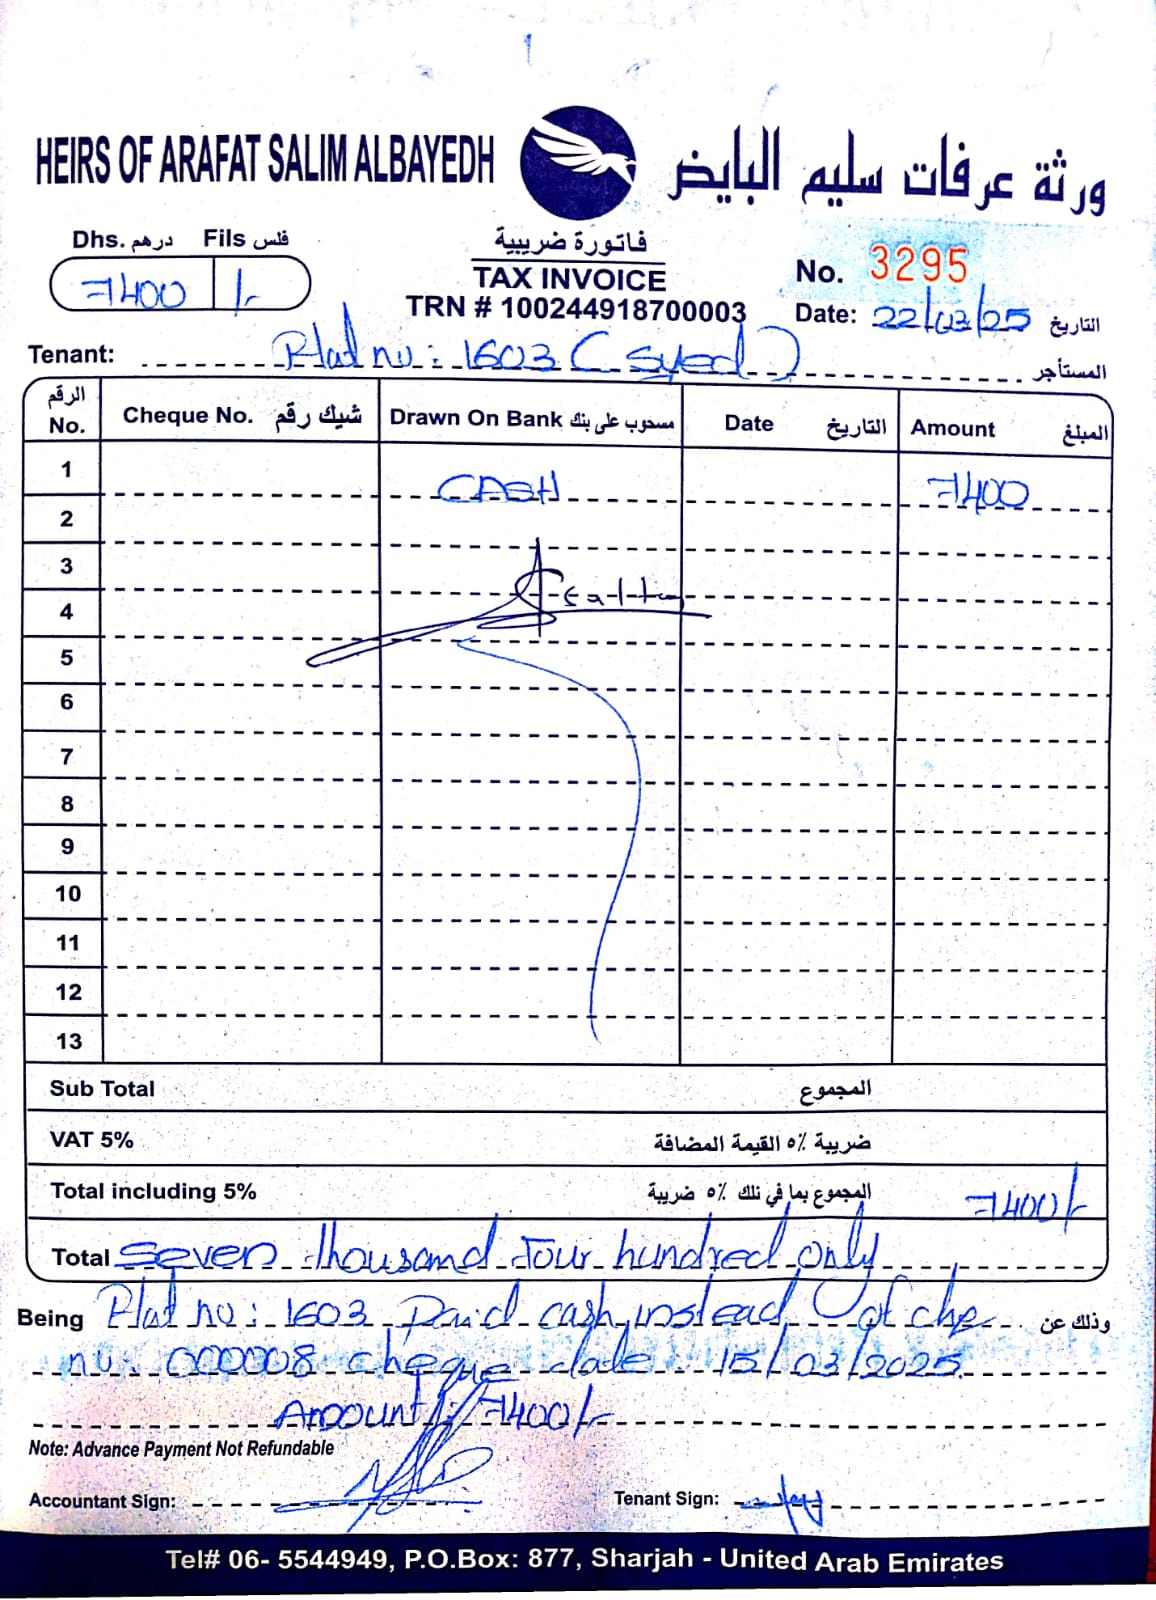 HEIRS OF ARAFAT SALIM ALBAYEDH
ورثة عرفات سليم البايض
Dhs. درهم Fils فلس
7400 /-
فاتورة ضريبية
TAX INVOICE
TRN # 100244918700003
No. 3295
Date: 22/03/25 التاريخ
Tenant: Flat no: 1603 (Syed) المستأجر
الرقم No. Cheque No. شيك رقم Drawn On Bank مسحوب على بنك Date التاريخ Amount المبلغ
1 CASH 7400
2
3
4
5
6
7
8
9
10
11
12
13
Sub Total المجموع
VAT 5% ضريبة ٥٪ القيمة المضافة
Total including 5% المجموع بما في ذلك ٥٪ ضريبة 7400/-
Total Seven thousand four hundred only
Being Flat no: 1603 Paid cash instead of chq وذلك عن
no: 000008 cheque date 15/03/2025
Amount: 7400/-
Note: Advance Payment Not Refundable
Accountant Sign: Tenant Sign:
Tel# 06- 5544949, P.O.Box: 877, Sharjah - United Arab Emirates